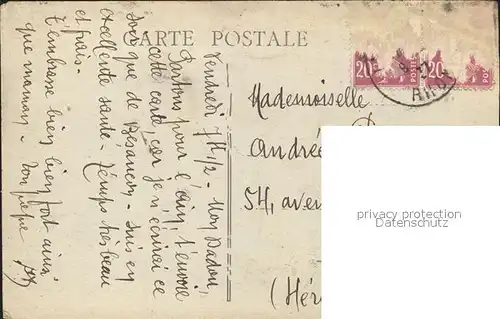 CARTE POSTALE
Vendredi 7H 1/2 - Mon Dadou,
Partons pour l'Ain, t'envoie
cette carte, car je n'écrirai ce
soir que de Besançon - suis en
excellente santé - Temps très beau
et frais -
T'embrasse bien bien fort ainsi
que maman - Ton pépé
20c POSTES 20c
Mademoiselle
Andrée
54, aven
(Hér
privacy protection
Datenschutz